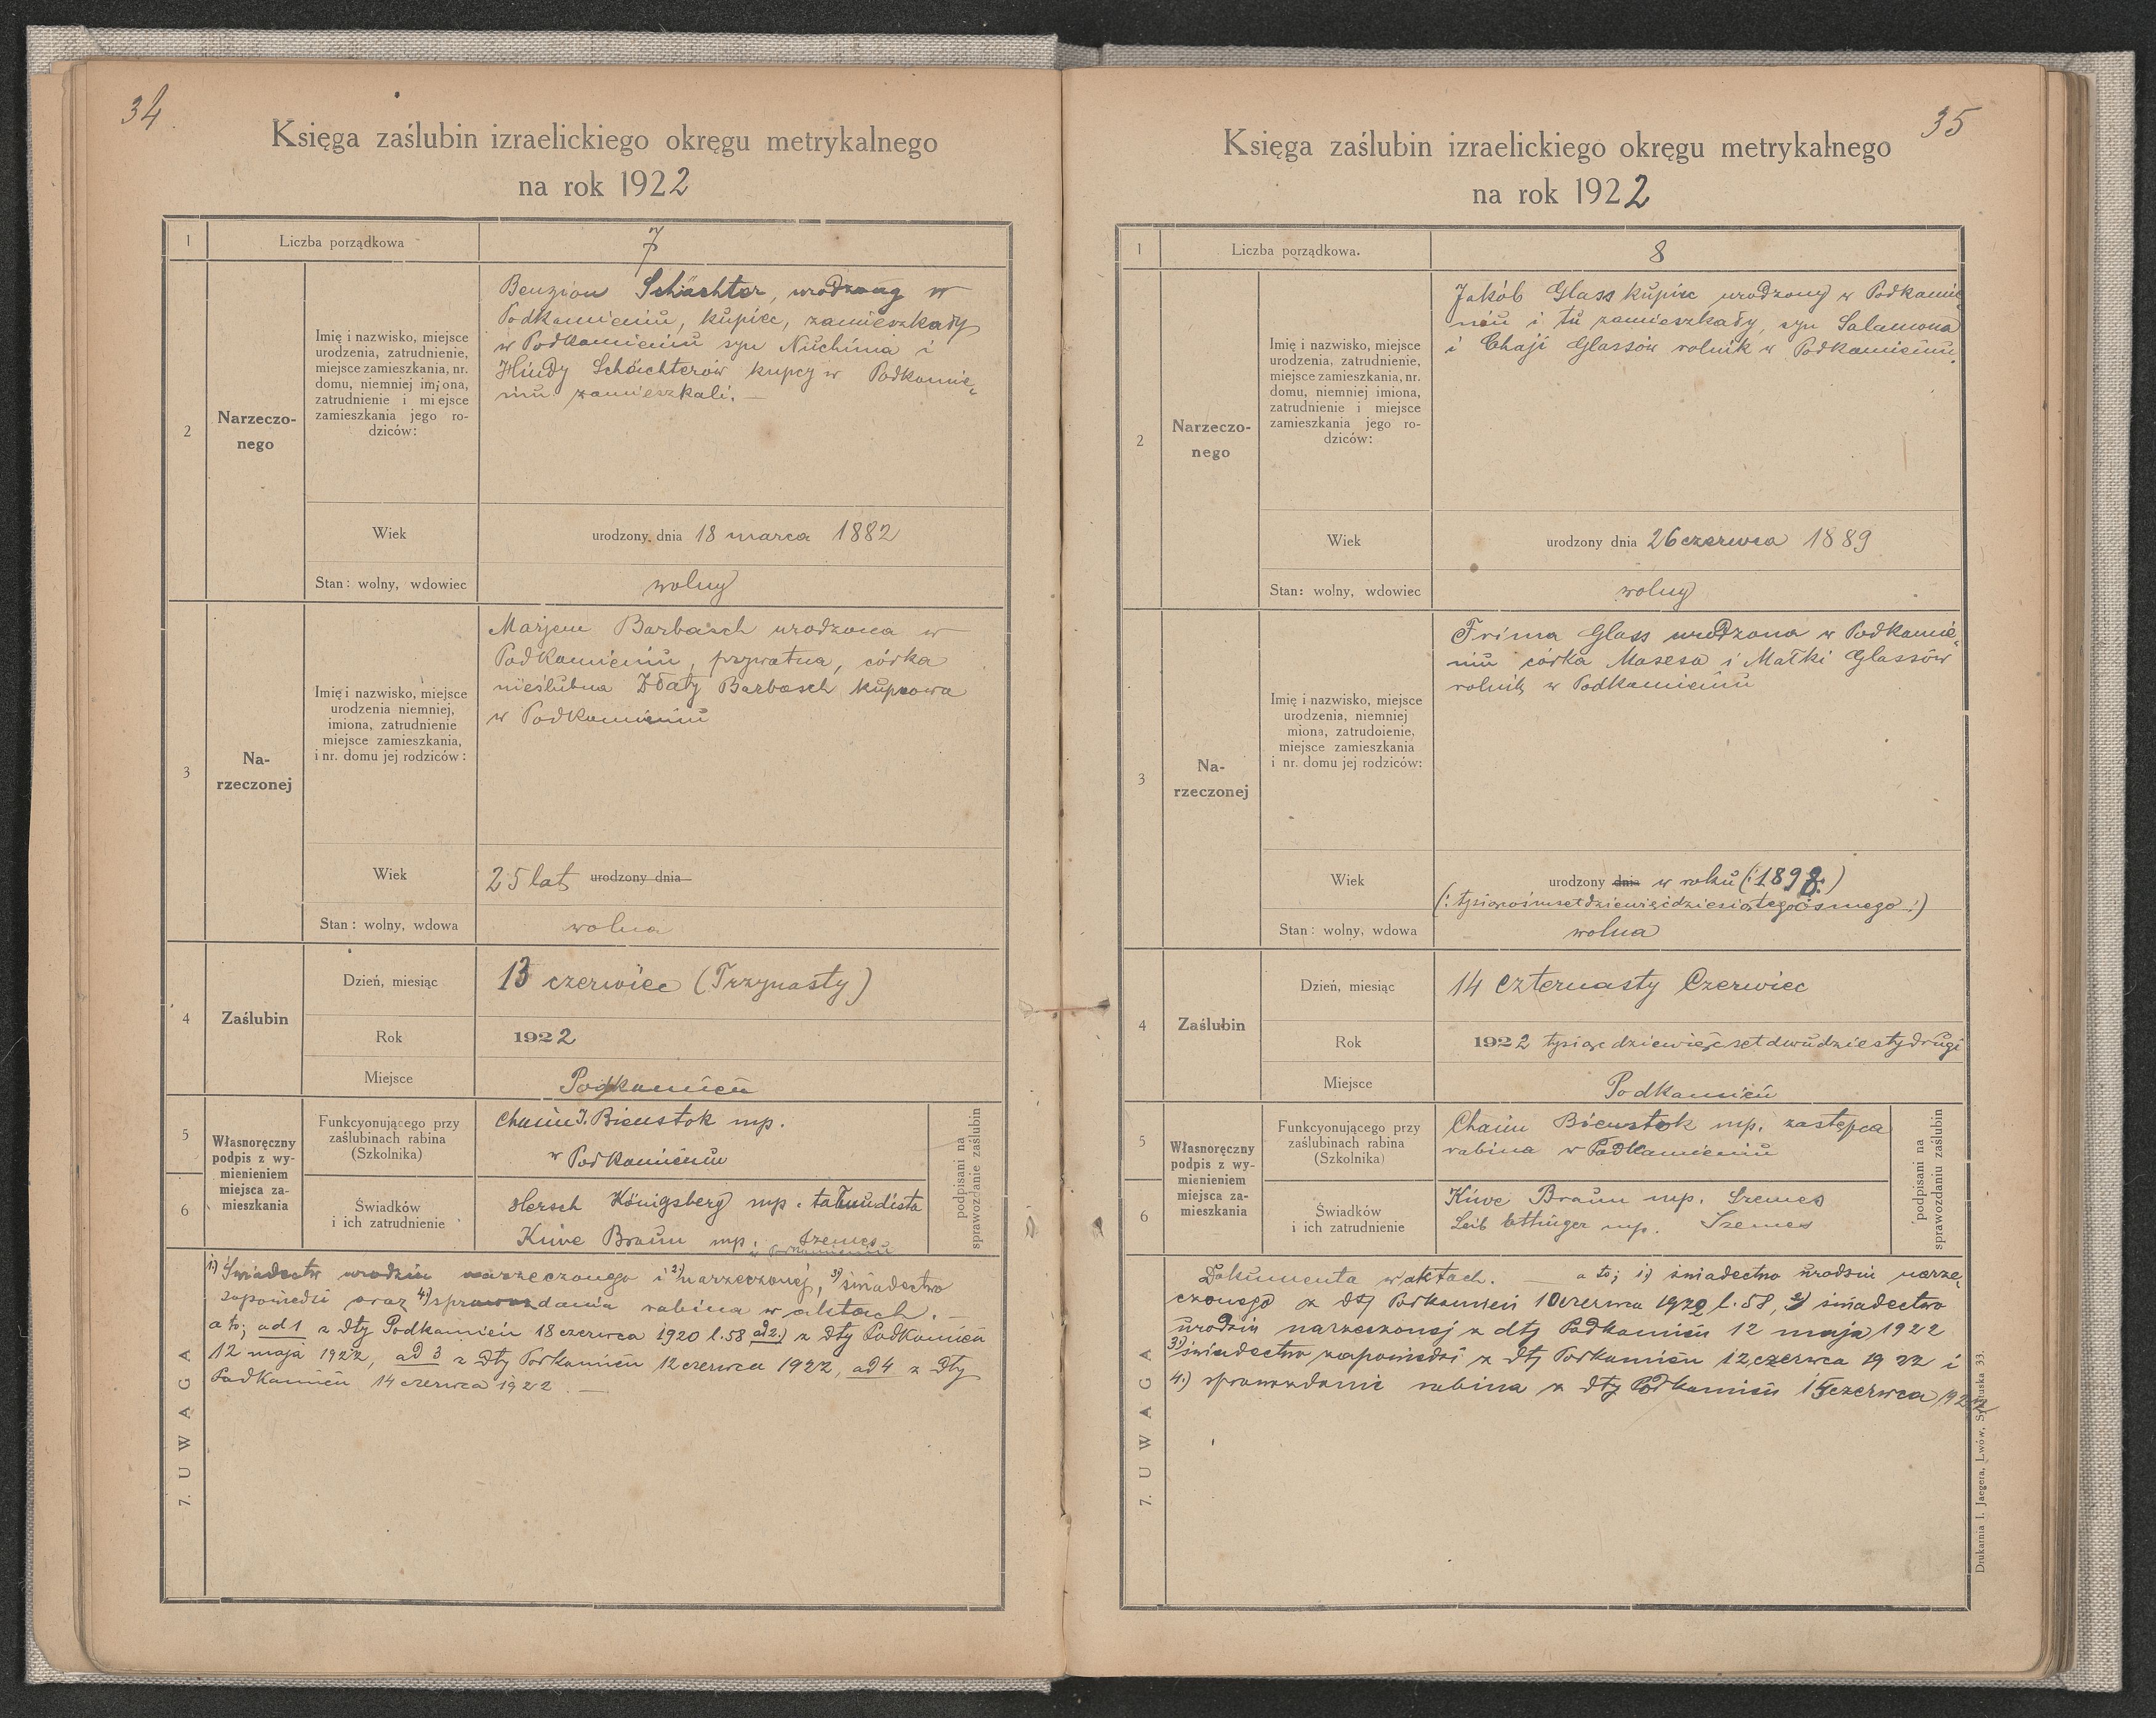 34
Księga zaślubin izraelickiego okręgu metrykalnego
na rok 1922
1
Liczba porządkowa
7
2
Narzeczo-
nego
Imię i nazwisko, miejsce
urodzenia, zatrudnienie,
miejsce zamieszkania, nr.
domu, niemniej imiona,
zatrudnienie i miejsce
zamieszkania jego ro-
dziców:
Benzion Schächter, urodzony w
Podkamieniu, kupiec, zamieszkały
w Podkamieniu syn Nuchima i
Hindy Schächterów kupcy w Podkamie-
niu zamieszkali. —
Wiek
urodzony dnia 18 marca 1882
Stan: wolny, wdowiec
wolny
3
Na-
rzeczonej
Imię i nazwisko, miejsce
urodzenia niemniej,
imiona, zatrudnienie
miejsce zamieszkania,
i nr. domu jej rodziców:
Marjem Barbasch urodzona w
Podkamieniu, prywatna, córka
nieślubna Złaty Barbasch kupcowa
w Podkamieniu
Wiek
25 lat urodzony dnia
Stan: wolny, wdowa
wolna
4
Zaślubin
Dzień, miesiąc
13 czerwiec (Trzynasty)
Rok
1922
Miejsce
Podkamień
5
6
Własnoręczny
podpis z wy-
mienieniem
miejsca za-
mieszkania
Funkcyonującego przy
zaślubinach rabina
(Szkolnika)
Chaim J. Bienstok mp.
w Podkamieniu
Świadków
i ich zatrudnienie
Hersch Königsberg mp. talmudista
Kiwe Braun mp. Szemes
w Podkamieniu
podpisani na
sprawozdanie zaślubin
7. UWAGA
1) Świadectw urodzin narzeczonego i 2) narzeczonej, 3) świadectwo
zapowiedzi oraz 4) sprawozdania rabina w aktach. —
a to; ad 1 z dty Podkamień 18 czerwca 1920 l. 58 ad 2.) z dty Podkamień
12 maja 1922, ad 3 z dty Podkamień 12 czerwca 1922, ad 4 z dty
Podkamień 14 czerwca 1922. —
35
Księga zaślubin izraelickiego okręgu metrykalnego
na rok 1922
1
Liczba porządkowa.
8
2
Narzeczo-
nego
Imię i nazwisko, miejsce
urodzenia, zatrudnienie,
miejsce zamieszkania, nr.
domu, niemniej imiona,
zatrudnienie i miejsce
zamieszkania jego ro-
dziców:
Jakób Glass kupiec urodzony w Podkamie
niu i tu zamieszkały, syn Salamona
i Chaji Glassów rolnik w Podkamieniu.
Wiek
urodzony dnia 26 czerwca 1889
Stan: wolny, wdowiec
wolny
3
Na-
rzeczonej
Imię i nazwisko, miejsce
urodzenia, niemniej
miona, zatrudoienie,
miejsce zamieszkania
i nr. domu jej rodziców:
Frima Glass urodzona w Podkamie-
niu córka Mosesa i Małki Glassów
rolnik w Podkamieniu
Wiek
urodzony dnia w roku (:1898:)
(: tysiącośmsetdziewięćdziesiątegoósmego :)
Stan: wolny, wdowa
wolna
4
Zaślubin
Dzień, miesiąc
14 czternasty Czerwiec
Rok
1922 tysiąc dziewięćset dwudziesty drugi
Miejsce
Podkamień
5
6
Własnoręczny
podpis z wy-
mienieniem
miejsca za-
mieszkania
Funkcyonującego przy
zaślubinach rabina
(Szkolnika)
Chaim Bienstok mp. zastępca
rabina w Podkamieniu
Świadków
i ich zatrudnienie
Kiwe Braun mp. Szemes
Leib Ettinger mp. Szemes
podpisani na
sprawozdaniu zaślubin
7. UWAGA
Dokumenta w aktach. — a to; 1) świadectwo urodzin narze-
czonego z dty Podkamień 10 czerwca 1922 l. 58, 2) świadectwo
urodzin narzeczonej z dty Podkamień 12 maja 1922
3) świadectwo zapowiedzi z dty Podkamień 12 czerwca 1922 i
4.) sprawozdanie rabina z dty Podkamień 15 czerwca 1922
Drukarnia I. Jaegera, Lwów, Sykstuska 33.